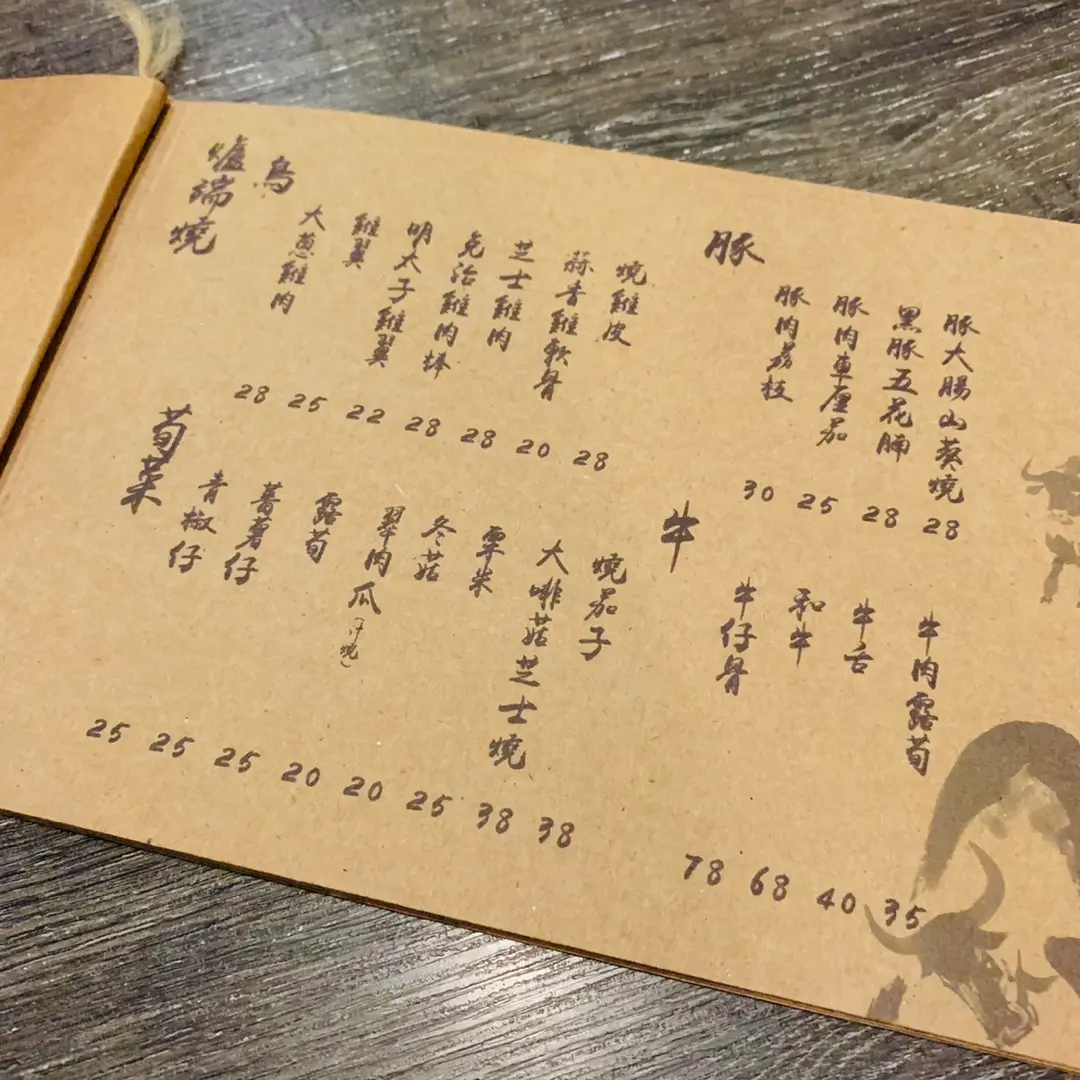 爐端燒
鳥
大葱雞肉
雞翼
明太子雞翼
免治雞肉棒
芝士雞肉
蒜香雞軟骨
燒雞皮
28 25 22 28 28 20 28
豚
豚肉荔枝
豚肉車厘茄
黑豚五花腩
豚大腸山葵燒
30 25 28 28
荀菜
青椒仔
蕃薯仔
露荀
翠肉瓜
冬菇
粟米
大啡菇芝士燒
燒茄子
25 25 25 20 20 25 38 38
牛
牛仔骨
和牛
牛舌
牛肉露荀
78 68 40 35